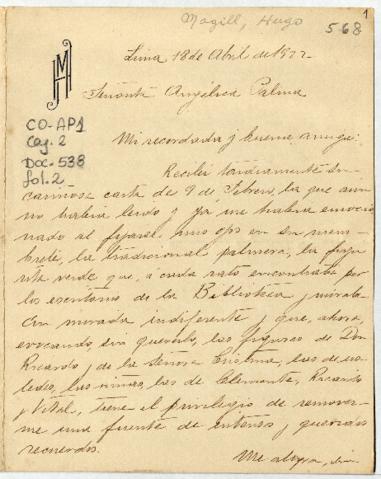 1
Magill, Hugo
568
HM
Lima 18 de Abril de 1922
Señorita Angélica Palma
CO-AP1
Caj. 2
Doc-538
fol.-2-
Mi recordada y buena amiga:
Recibí tardíamente su
cariñosa carta de 9 de Febrero, la que aun
no había leido y ya me había emocio
nado al fijarse mis ojos en su mem-
brete, la tradicional palmera, la
verde que, á cada rato encontraba por
los escritorios de la Biblioteca y miraba
con mirada indiferente y que, ahora,
evocando sin quererlo, las figuras de Don
Ricardo y de la Señora Cristina, las de us-
tedes, las niñas, las de Clemente, Ricardo
y Vital, tiene el privilegio de remover-
me una fuente de intensos y queridos
recuerdos.
Me alegra,